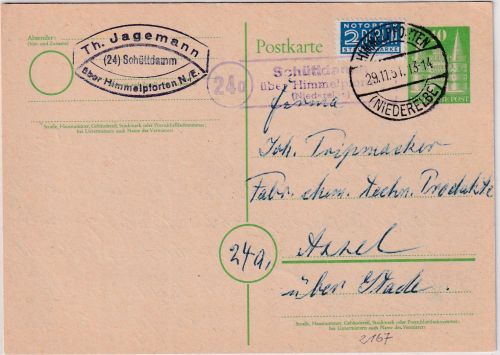 Absender:
Th. Jagemann
(24) Schüttdamm
über Himmelpforten N./E.
Postkarte
NOTOPFER
2 BERLIN
STEUERMARKE
HIMMELPFORTEN
29.11.51.13-14
(NIEDERELBE)
10
DEUTSCHE POST
24a
Schüttdamm
über Himmelpforten
(Niederelbe)
Straße, Hausnummer, Gebäudeteil, Stockwerk oder Postschließfachnummer;
bei Untermietern auch Name des Vermieters
Firma
Joh. Tripmacker
Fabr. chem. techn. Produkte
24a,
Assel
über Stade.
Straße, Hausnummer, Gebäudeteil, Stockwerk oder Postschließfachnummer;
bei Untermietern auch Name des Vermieters
2167